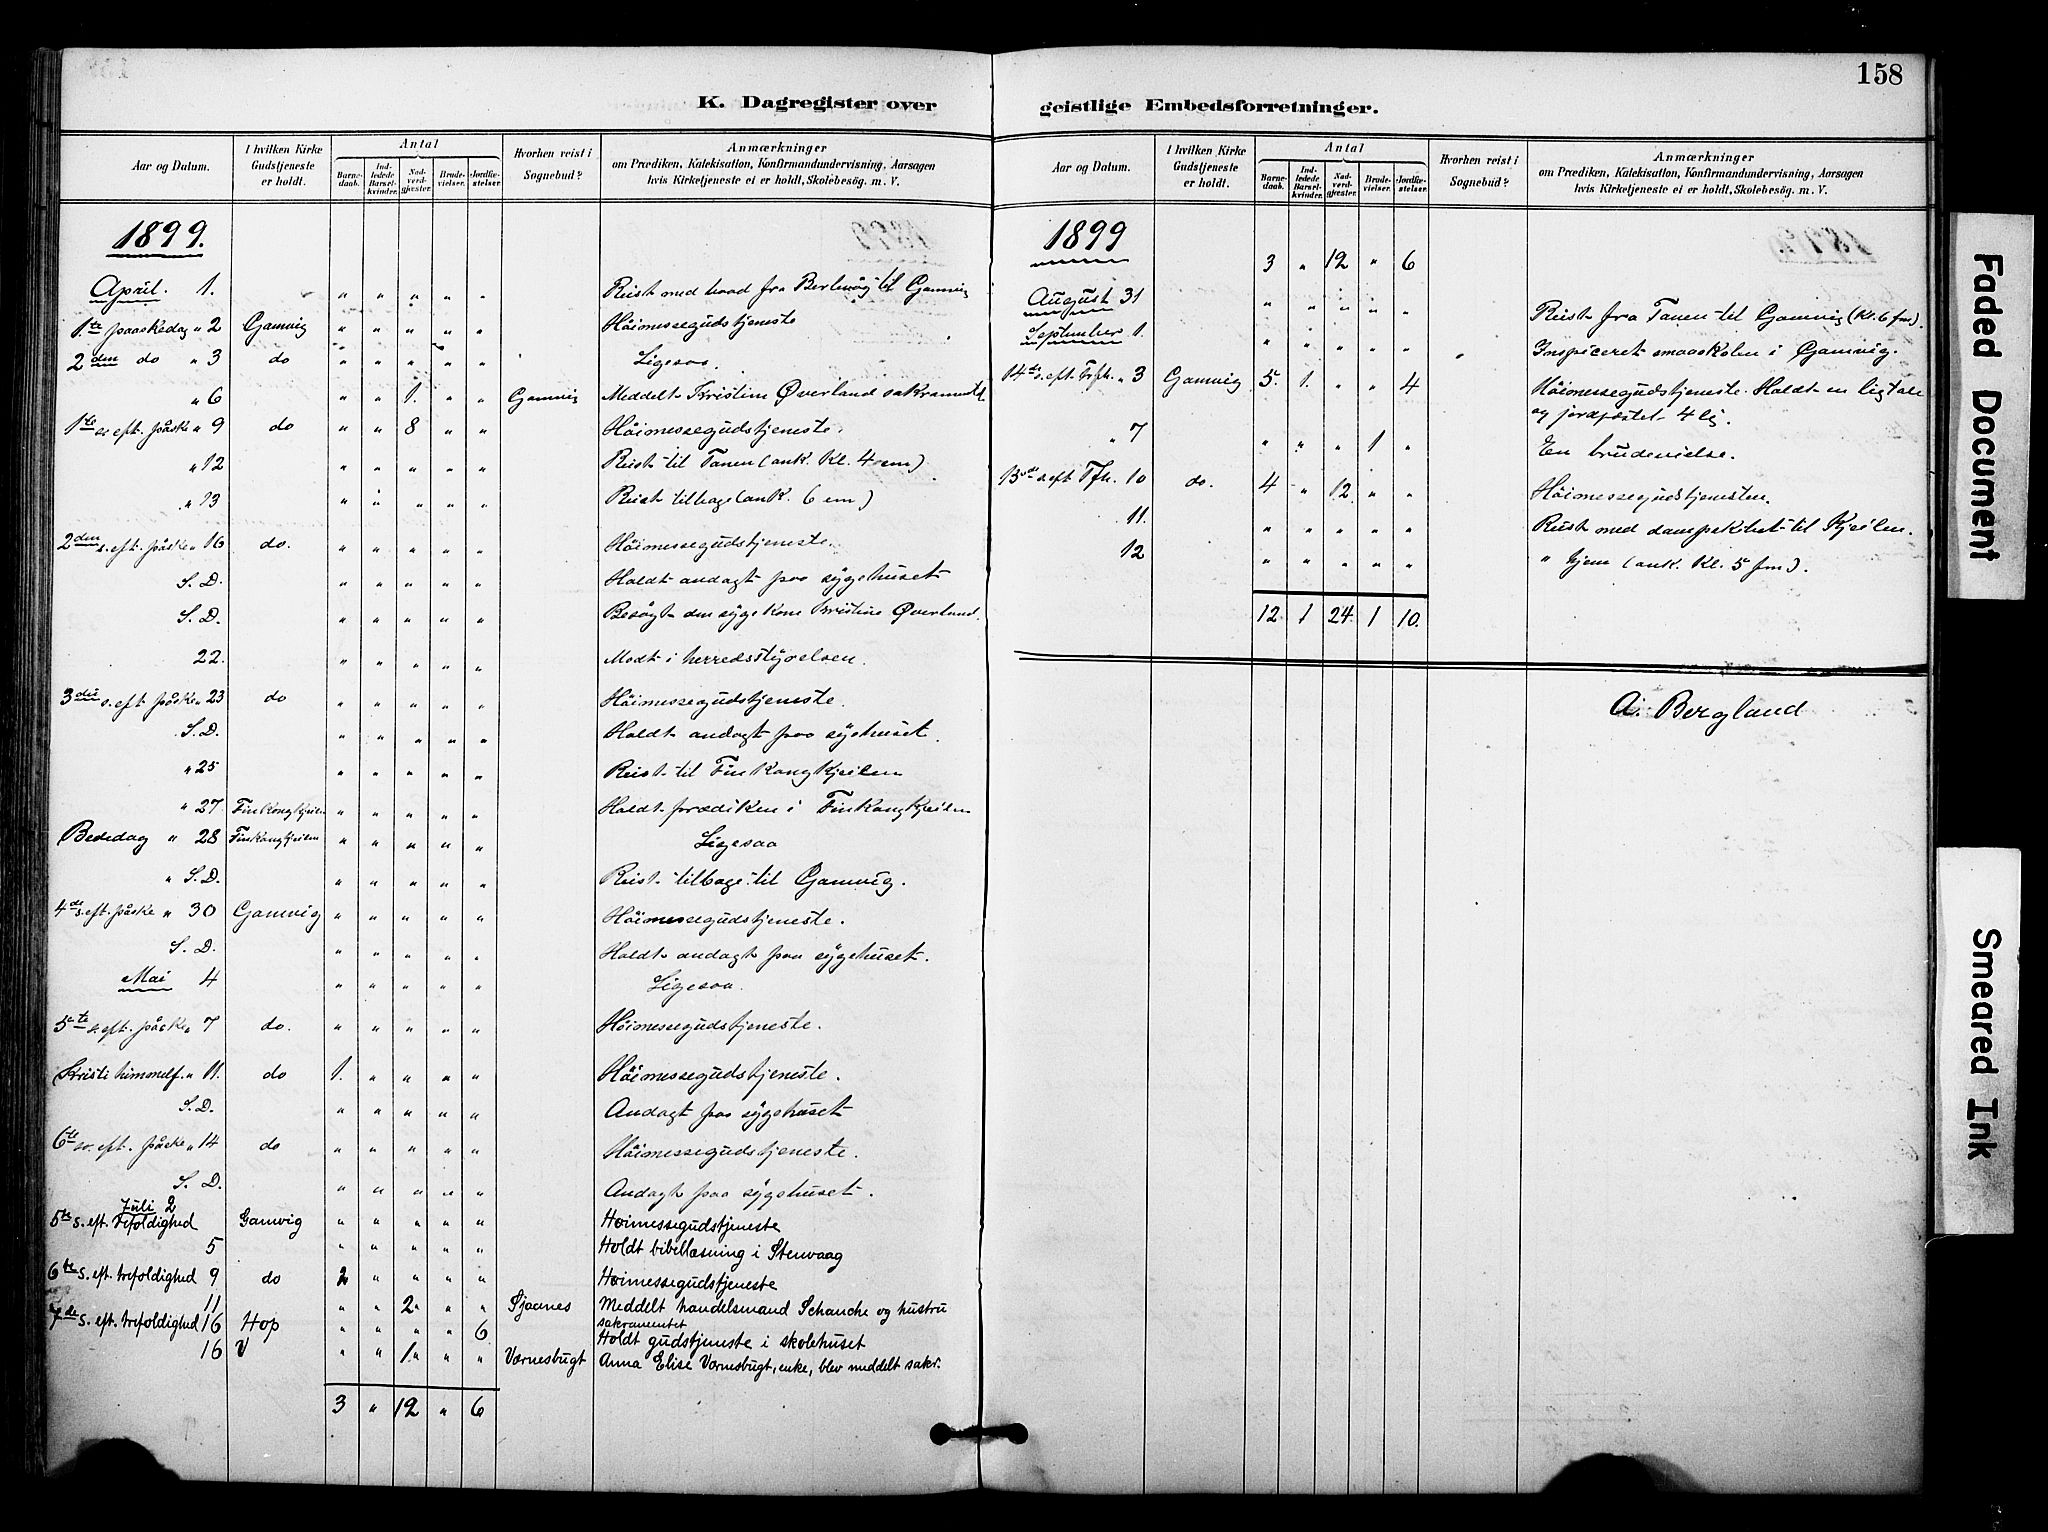 158
K. Dagregister over geistlige Embedsforretninger.
Aar og Datum. | I hvilken Kirke Gudstjeneste er holdt. | Antal | Barne-daab. | Ind-ledede Barsel-kvinder. | Nad-verd-gjester. | Brude-vielser. | Jordfæ-stelser. | Hvorhen reist i Sognebud? | Anmærkninger om Prædiken, Katekisation, Konfirmandundervisning, Aarsagen hvis Kirketjeneste ei er holdt, Skolebesøg. m. V.
1899.
April. 1. | " | " | " | " | " | Reist med baad fra Berlevåg til Gamvig
1ste paaskedag " 2 | Gamvig | " | " | " | " | " | Höimessegudstjeneste
2den do " 3 | do | " | " | " | " | " | Ligesaa.
" 6 | " | " | 1. | " | " | Gamvig | Meddelt Kristine Øverland sakramentet.
1ste s. eft. påske " 9 | do | " | " | 8 | " | " | Höimessegudstjeneste.
" 12 | " | " | " | " | " | Reist til Tanen (ank. Kl. 4 em)
" 13 | " | " | " | " | " | Reist tilbage (ank. 6 em)
2den s. eft. påske " 16 | do. | " | " | " | " | " | Höimessegudstjeneste.
S. D. | " | " | " | " | " | Holdt andagt paa sygehuset
S. D. | " | " | " | " | " | Besögt den syge kone Kristine Øverland.
22. | " | " | " | " | " | Mødt i herredsstyrelsen.
3die s. eft påske " 23 | do | " | " | " | " | " | Höimessegudstjeneste.
S. D. | " | " | " | " | " | Holdt andagt paa sygehuset.
" 25 | " | " | " | " | " | Reist til Finkongkjeilen
" 27 | Finkongkjeilen | " | " | " | " | " | Holdt prædiken i Finkongkjeilen
Bededag " 28 | Finkongkjeilen | " | " | " | " | " | Ligesaa
" S. D. | " | " | " | " | " | Reist tilbage til Gamvig.
4de s. eft. påske " 30 | Gamvig | " | " | " | " | " | Höimessegudstjeneste.
S. D. | " | " | " | " | " | Holdt andagt paa sygehuset.
Mai 4 | " | " | " | " | " | Ligesaa.
5te s. eft. påske " 7 | do. | " | " | " | " | " | Höimessegudstjeneste.
Kristi himmelf. " 11. | do | 1. | " | " | " | " | Höimessegudstjeneste.
S. D. | " | " | " | " | " | Andagt paa sygehuset
6te s. eft. påske " 14 | do | " | " | " | " | " | Höimessegudstjeneste.
S. D. | " | " | " | " | " | Andagt paa sygehuset.
Juli 2
5te s. eft. trefoldighed | Gamvig | " | " | " | " | " | Høimessegudstjeneste
5 | " | " | " | " | " | Holdt bibellæsning i Stenvaag
6te s. eft. trefoldighed 9 | do | 2 | " | " | " | " | Høimessegudstjeneste
11 | " | " | 2 | " | " | Sjaanes | Meddelt handelsmand Schanche og hustru sakramentet
7de s. eft. trefoldighed 16 | Hop | " | " | " | " | 6 | Holdt gudstjeneste i skolehuset
16 | " | " | 1 | " | " | Værnesbugt | Anna Elise Værnesbugt, enke, blev meddelt sakr.
3 | " | 12 | " | 6
Aar og Datum. | I hvilken Kirke Gudstjeneste er holdt. | Antal | Barne-daab. | Ind-ledede Barsel-kvinder. | Nad-verd-gjester. | Brude-vielser. | Jordfæ-stelser. | Hvorhen reist i Sognebud? | Anmærkninger om Prædiken, Katekisation, Konfirmandundervisning, Aarsagen hvis Kirketjeneste ei er holdt, Skolebesøg. m. V.
1899
3 | " | 12 | " | 6
August 31 | " | " | " | " | " | Reist fra Tanen til Gamvig (Kl. 6 fm).
September 1. | " | " | " | " | " | Inspiceret smaaskolen i Gamvig.
14de s. eft. Trfh. " 3 | Gamvig | 5. | 1. | " | " | 4 | Höimessegudstjeneste. Holdt en ligtale
og jordfæstet 4 lig.
" 7 | " | " | " | 1 | " | En brudevielse.
15de s. eft Tfh. 10 | do. | 4 | " | 12. | " | " | Höimessegudstjenesten.
11. | " | " | " | " | " | Reist med dampskibet til Kjeilen.
12 | " | " | " | " | " | " hjem (ank. Kl. 5 fm).
12. | 1 | 24. | 1 | 10.
A. Bergland
Faded Document
Smeared Ink